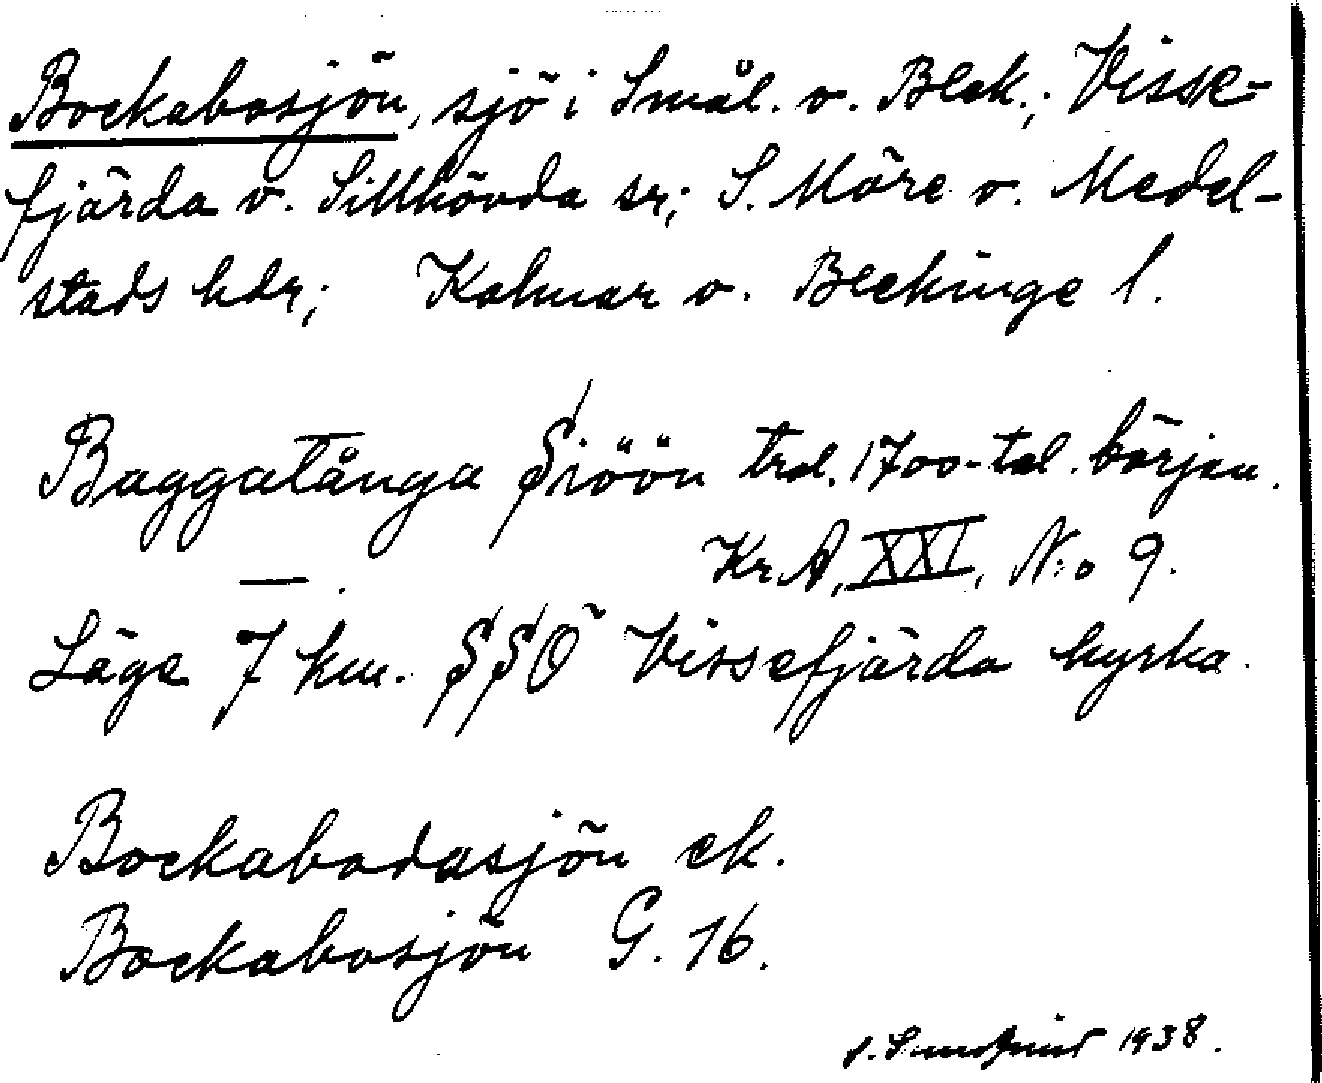 Bockabosjön, sjö i Smål. o. Blek.; Visse-
fjärda o. Sillhövda sr; S. Möre o. Medel-
stads hdr; Kalmar o. Blekinge l.
Baggatånga Siöön trol. 1700-tal. början.
Kr.A, XXI, N:o 9.
Läge 7 km. SSO Vissefjärda kyrka.
Bockabodasjön ek.
Bockabosjön G. 16.
1938.